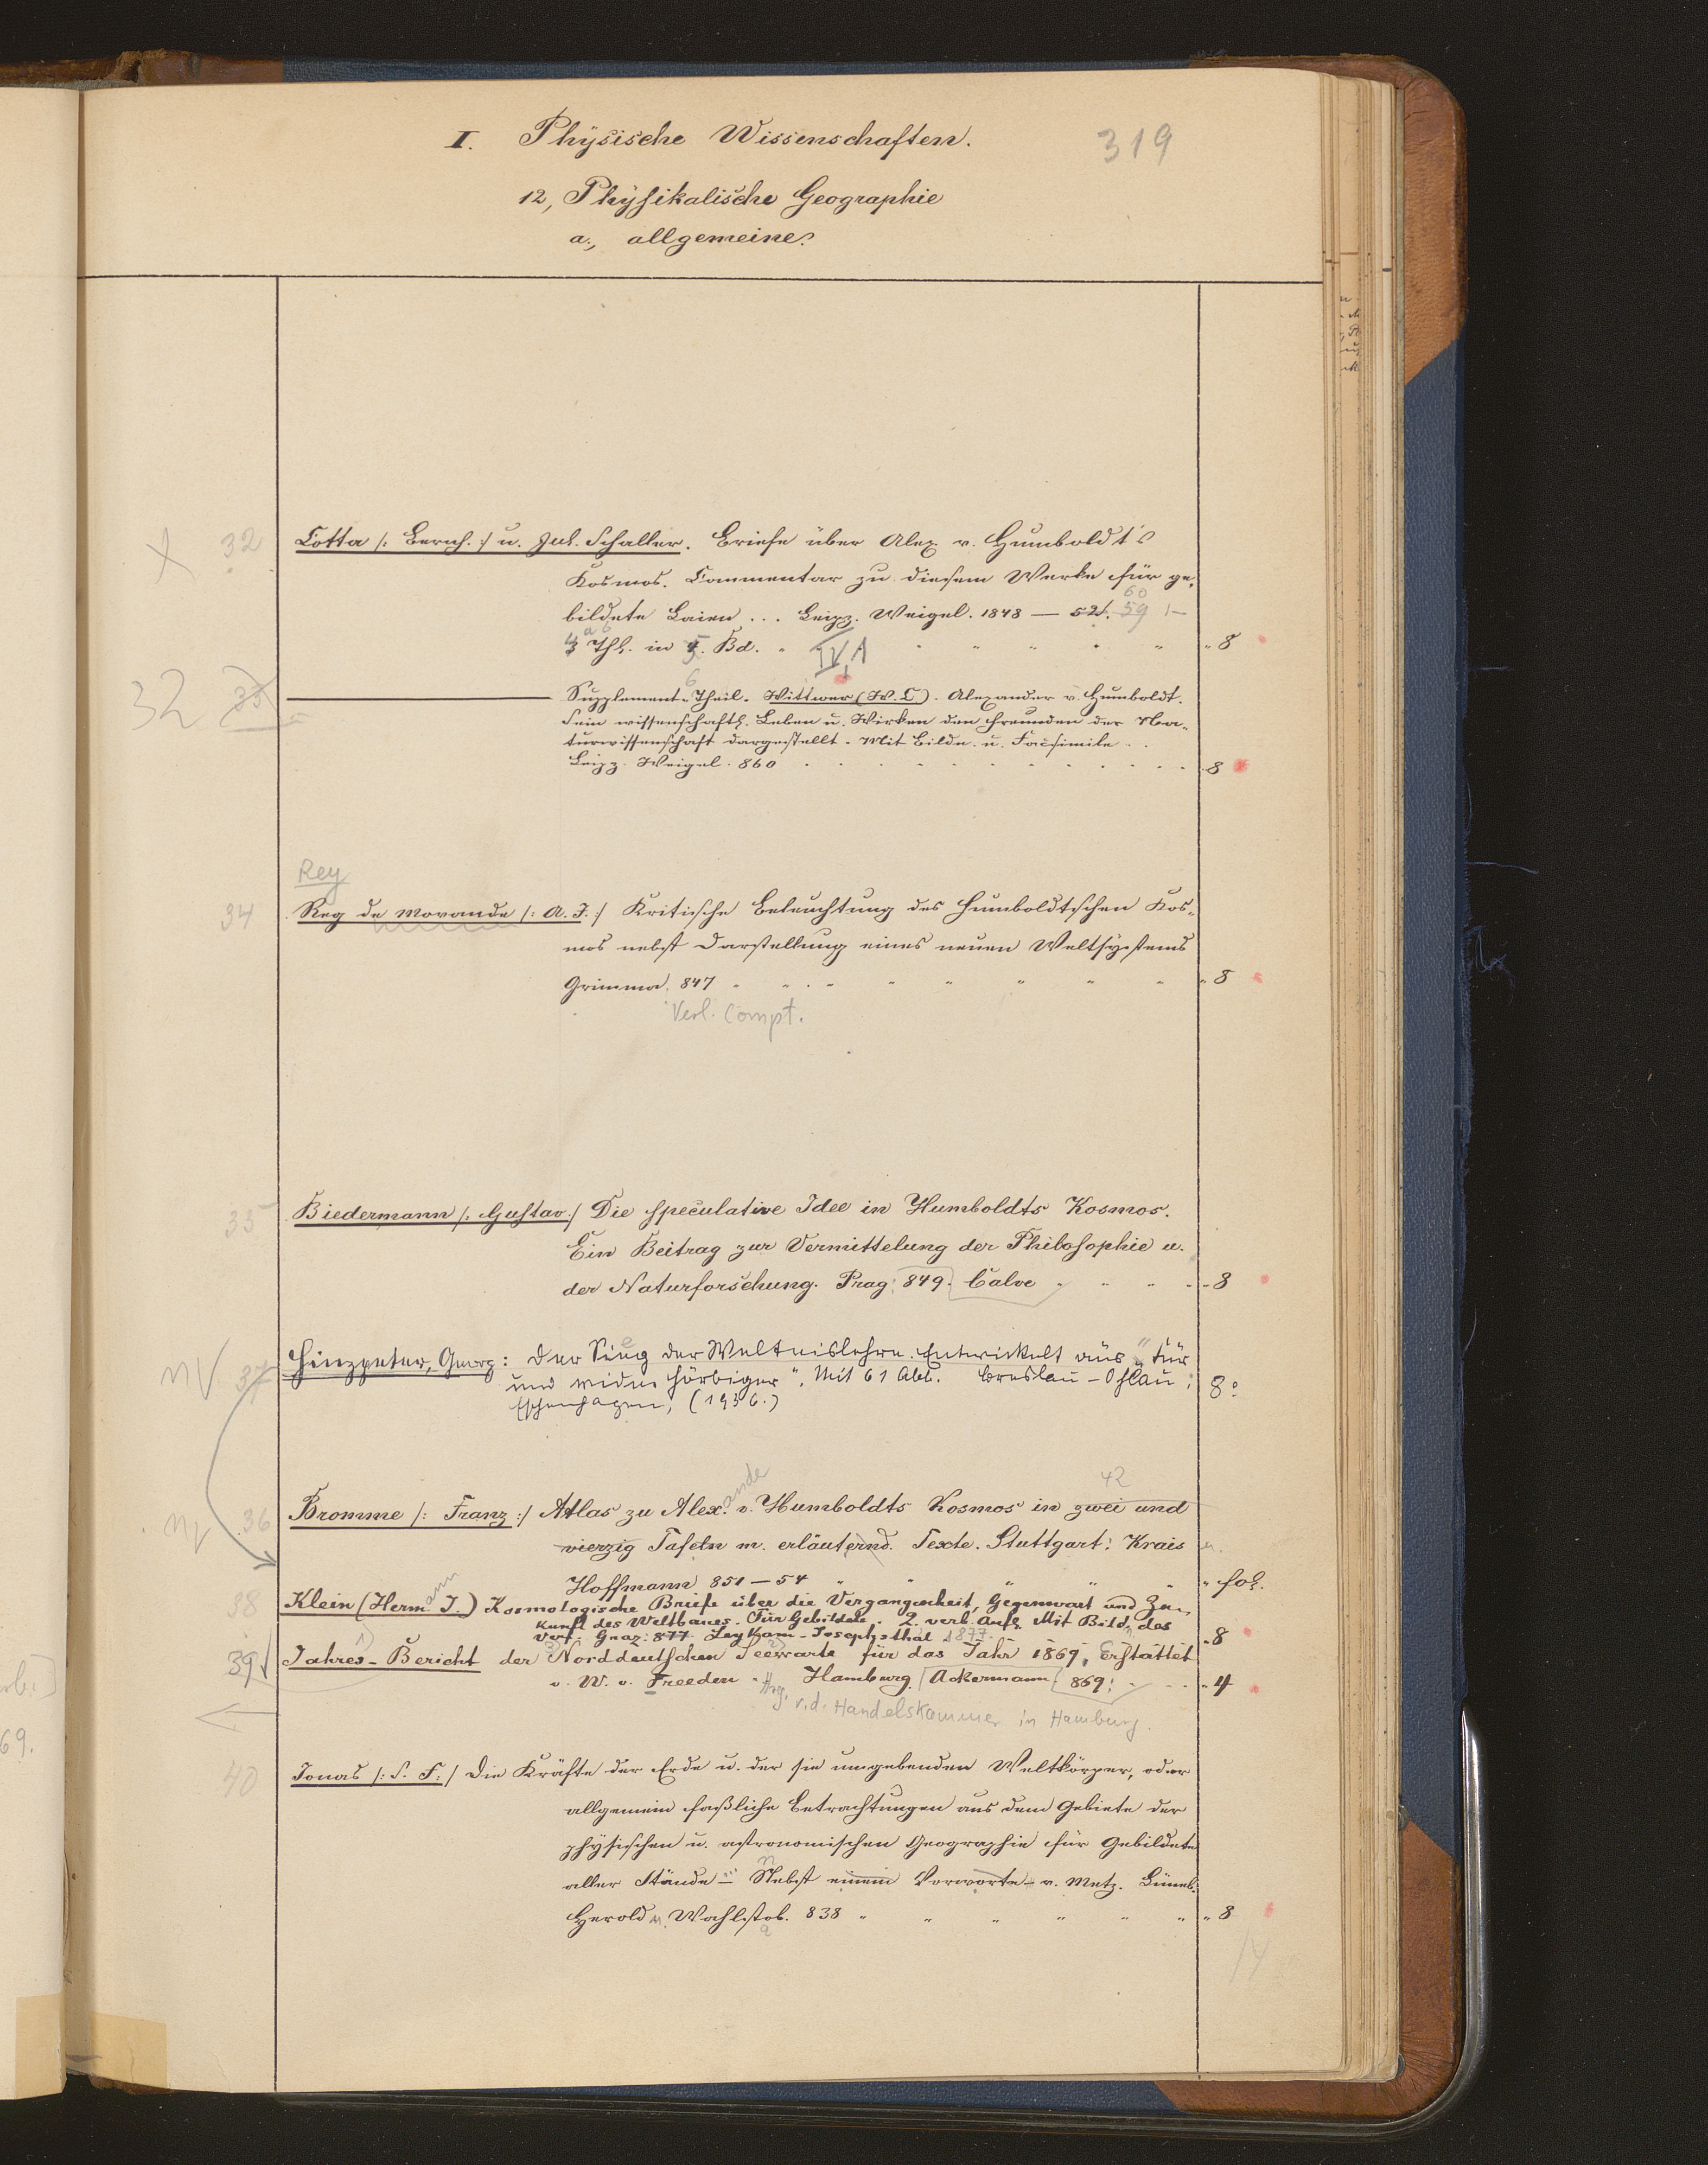 I. Physische Wissenschaften. 319
12, Physikalische Geographie
a., allgemeine.
32 Cotta /: Bernh. :/ u. Jul. Schaller. Briefe über Alex v. Humboldt's
Kosmos. Commentar zu diesem Werke für ge-
60
bildete Laien ... Leipz. Weigel. 1848 — 52. 59
Thl. in Bd. " " " " " " " 8
IV,1
32 Supplement-Theil. Wittwer (W. C). Alexander v. Humboldt.
Sein wissenschaftl. Leben u. Wirken den Freunden der Na-
turwissenschaft dargestellt. Mit Bildn. u. Facsimile . .
Leipz. Weigel. 860 . . . . . . . . . . . 8
Rey
34 Reg de Morande /: A. J. :/ Kritische Beleuchtung des Humboldtschen Kos-
mos nebst Darstellung eines neuen Weltsystems
Grimma. 847 " " " " " " " " 8
Verl. Compt.
35 Biedermann /: Gustav :/ Die speculative Idee in Humboldts Kosmos.
Ein Beitrag zur Vermittelung der Philosophie u.
der Naturforschung. Prag: 849. Calve " " " " 8
37 Hinzpeter, Georg: Der Sieg der Welteislehre. Entwickelt aus "Für
und wider Hörbiger". Mit 61 Abb. Breslau-Ohlau: 8°
Eschenhagen, (1936.)
ande 42
36 Bromme /: Franz :/ Atlas zu Alex. v. Humboldts Kosmos in zwei und
vierzig Tafeln m. erläuternd. Texte. Stuttgart: Krais u.
Hoffmann 851—54 " " " " " fol.
ann
38 Klein (Herm. J.) Kosmologische Briefe über die Vergangenheit, Gegenwart und Zu-
kunft des Weltbaues. Für Gebildete. 2. verb. Aufl. Mit Bildn. des
Verf. Graz: 877. Leykam-Josephsthal 1877. 8
39 Jahres-Bericht der Norddeutschen Seewarte für das Jahr 1869, Erstattet
v. W. v. Freeden. Hamburg. Ackermann 869: . . . 4
Hrg. v. d. Handelskammer in Hamburg.
40 Jonas /: S. F. :/ Die Kräfte der Erde u. der sie umgebenden Weltkörper, oder
allgemein faßliche Betrachtungen aus dem Gebiete der
physischen u. astronomischen Geographie für Gebildete
aller Stände — Nebst einem Vorworte v. Metz. Lüneb:
Herold u. Wahlstab. 838 " " " " " " " 8
14
69.